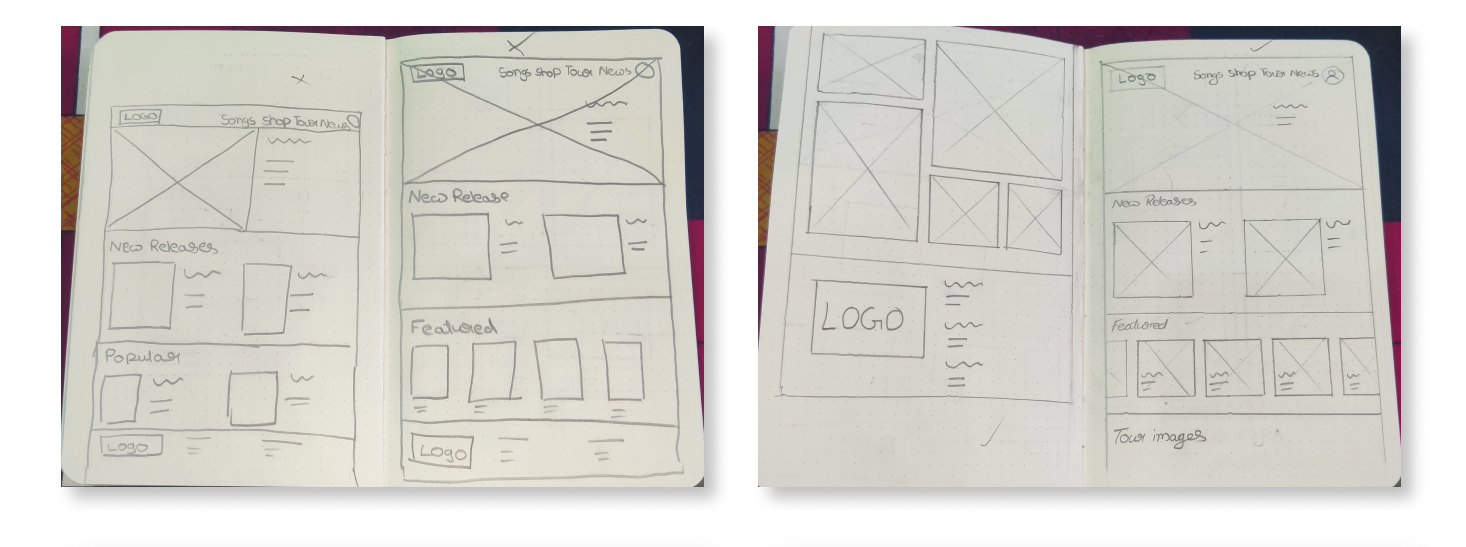 LOGO
Songs Shop Tour News
New Releases
Popular
Logo
Logo
Songs Shop Tour News
New Release
Featured
Logo
LOGO
Logo
Songs Shop Tour News
New Releases
Featured
Tour images